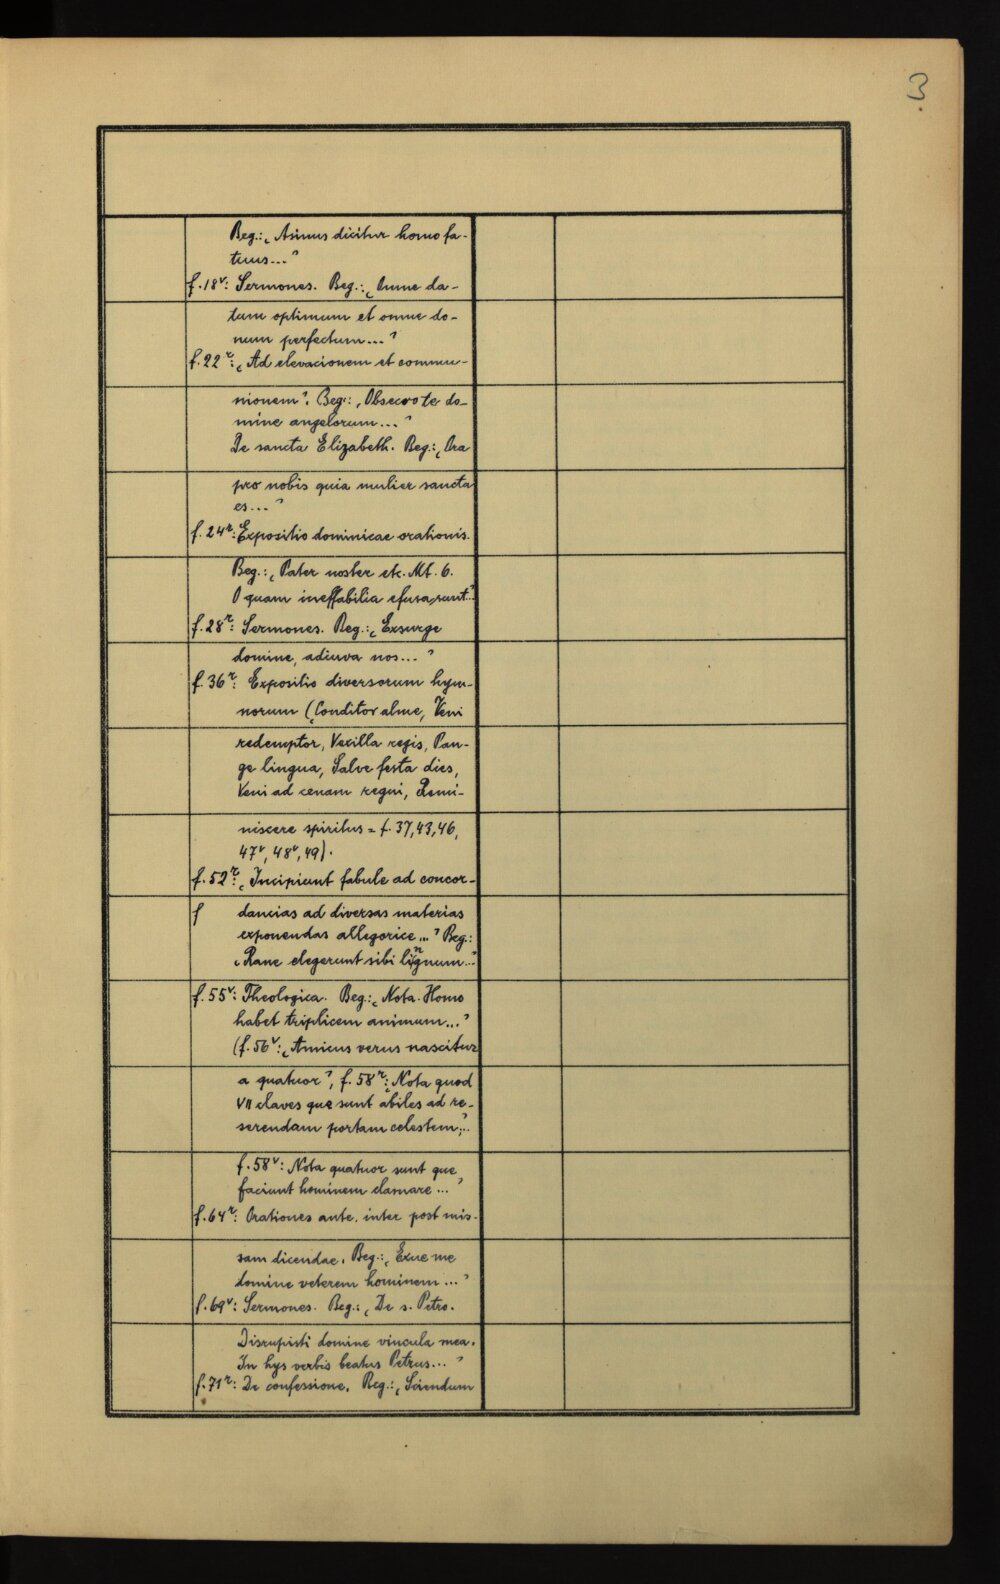 3
Beg.: „Asinus dicitur homo fa-
tuus..."
f. 18v: Sermones. Beg.: „Omne da-
tum optimum et omne do-
num perfectum..."
f. 22r: „Ad elevacionem et commu-
nionem". Beg.: „Obsecro te do-
mine angelorum..."
De sancta Elizabeth. Beg.: „Ora
pro nobis quia mulier sancta
es..."
f. 24r: Expositio dominicae orationis.
Beg.: „Pater noster etc. Mt. 6.
O quam ineffabilia efusa sunt..."
f. 28r: Sermones. Beg.: „Exsurge
domine, adiuva nos..."
f. 36r: Expositio diversorum hym-
norum (Conditor alme, Veni
redemptor, Vexilla regis, Pan-
ge lingua, Salve festa dies,
Veni ad cenam regni, Remi-
niscere spiritus = f. 37, 43, 46,
47v, 48v, 49).
f. 52r: „Incipiunt fabule ad concor-
f dancias ad diversas materias
exponendas allegorice..." Beg.:
„Rane elegerunt sibi lignum..."
f. 55v: Theologica. Beg.: „Nota. Homo
habet triplicem animum..."
(f. 56v: „Amicus verus nascitur
a quatuor", f. 58r: „Nota quod
VII claves que sunt abiles ad re-
serendam portam celestem..."
f. 58v: Nota quatuor sunt que
faciunt hominem clamare..."
f. 64r: Orationes ante, inter post mis-
sam dicendae. Beg.: „Exue me
domine veterem hominem..."
f. 69v: Sermones. Beg.: „De s. Petro.
Disrupisti domine vincula mea.
In hys verbis beatus Petrus..."
f. 71r: De confessione. Beg.: „Sciendum